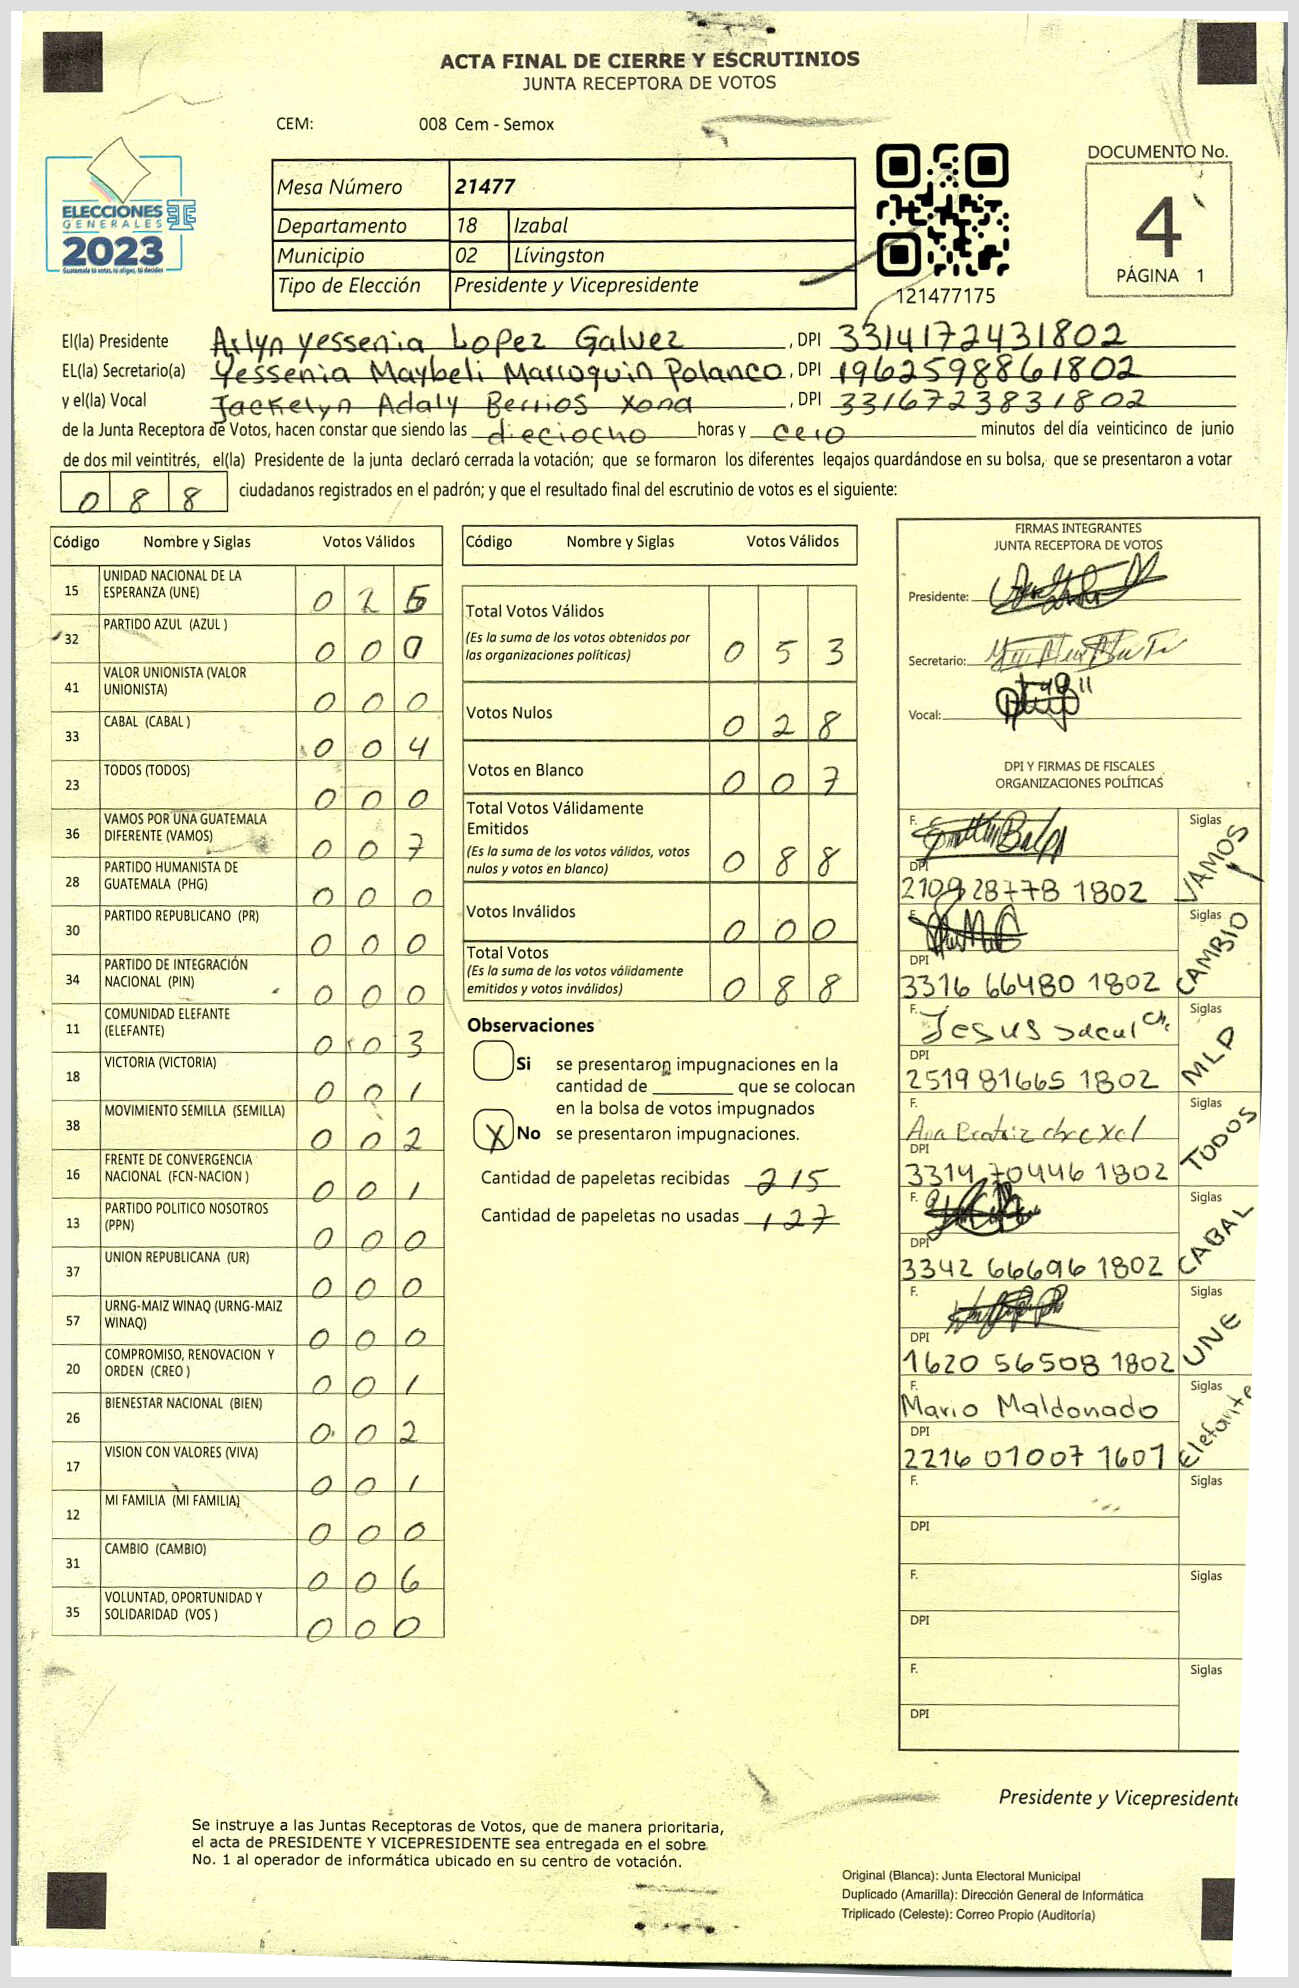 ACTA FINAL DE CIERRE Y ESCRUTINIOS
JUNTA RECEPTORA DE VOTOS
CEM: 008 Cem - Semox
ELECCIONES
GENERALES
2023
Guatemala tú votas, tú eliges, tú decides
Mesa Número 21477
Departamento 18 Izabal
Municipio 02 Lívingston
Tipo de Elección Presidente y Vicepresidente
121477175
DOCUMENTO No.
4
PÁGINA 1
El(la) Presidente Arlyn yessenia Lopez Galvez, DPI 3314172431802
EL(la) Secretario(a) Yessenia Maybeli Marroquin Polanco, DPI 1962598861802
y el(la) Vocal Jackelyn Adaly Berrios Xona, DPI 3316723831802
de la Junta Receptora de Votos, hacen constar que siendo las dieciocho horas y cero minutos del día veinticinco de junio
de dos mil veintitrés, el(la) Presidente de la junta declaró cerrada la votación; que se formaron los diferentes legajos guardándose en su bolsa, que se presentaron a votar
0 8 8 ciudadanos registrados en el padrón; y que el resultado final del escrutinio de votos es el siguiente:
Código Nombre y Siglas Votos Válidos
15 UNIDAD NACIONAL DE LA ESPERANZA (UNE) 0 2
32 PARTIDO AZUL (AZUL ) 0 0 0
41 VALOR UNIONISTA (VALOR UNIONISTA) 0 0 0
33 CABAL (CABAL ) 0 0 4
23 TODOS (TODOS) 0 0 0
36 VAMOS POR UNA GUATEMALA DIFERENTE (VAMOS) 0 0 7
28 PARTIDO HUMANISTA DE GUATEMALA (PHG) 0 0 0
30 PARTIDO REPUBLICANO (PR) 0 0 0
34 PARTIDO DE INTEGRACIÓN NACIONAL (PIN) 0 0 0
11 COMUNIDAD ELEFANTE (ELEFANTE) 0 0 3
18 VICTORIA (VICTORIA) 0 0 1
38 MOVIMIENTO SEMILLA (SEMILLA) 0 0 2
16 FRENTE DE CONVERGENCIA NACIONAL (FCN-NACION ) 0 0 1
13 PARTIDO POLITICO NOSOTROS (PPN) 0 0 0
37 UNION REPUBLICANA (UR) 0 0 0
57 URNG-MAIZ WINAQ (URNG-MAIZ WINAQ) 0 0 0
20 COMPROMISO, RENOVACION Y ORDEN (CREO ) 0 0 1
26 BIENESTAR NACIONAL (BIEN) 0 0 2
17 VISION CON VALORES (VIVA) 0 0 1
12 MI FAMILIA (MI FAMILIA) 0 0 0
31 CAMBIO (CAMBIO) 0 0 6
35 VOLUNTAD, OPORTUNIDAD Y SOLIDARIDAD (VOS ) 0 0 0
Código Nombre y Siglas Votos Válidos
Total Votos Válidos 0 5 3
(Es la suma de los votos obtenidos por
las organizaciones políticas)
Votos Nulos 0 2 8
Votos en Blanco 0 0 7
Total Votos Válidamente
Emitidos 0 8 8
(Es la suma de los votos válidos, votos
nulos y votos en blanco)
Votos Inválidos 0 0 0
Total Votos 0 8 8
(Es la suma de los votos válidamente
emitidos y votos inválidos)
Observaciones
Si se presentaron impugnaciones en la
cantidad de ________ que se colocan
en la bolsa de votos impugnados
X No se presentaron impugnaciones.
Cantidad de papeletas recibidas 215
Cantidad de papeletas no usadas 127
FIRMAS INTEGRANTES
JUNTA RECEPTORA DE VOTOS
Presidente:
Secretario:
Vocal:
DPI Y FIRMAS DE FISCALES
ORGANIZACIONES POLÍTICAS
F. Siglas VAMOS
DPI 2109 28778 1802
F. Siglas CAMBIO
DPI 3316 66480 1802
F. Jesus Siglas MLP
DPI 2519 81665 1802
F. Ana Beatriz Siglas TODOS
DPI 3314 70446 1802
F. Siglas CABAL
DPI 3342 66696 1802
F. Siglas UNE
DPI 1620 56508 1802
F. Mario Maldonado Siglas Elefante
DPI 2216 01007 1601
F. Siglas
DPI
F. Siglas
DPI
F. Siglas
DPI
Presidente y Vicepresidente
Se instruye a las Juntas Receptoras de Votos, que de manera prioritaria,
el acta de PRESIDENTE Y VICEPRESIDENTE sea entregada en el sobre
No. 1 al operador de informática ubicado en su centro de votación.
Original (Blanca): Junta Electoral Municipal
Duplicado (Amarilla): Dirección General de Informática
Triplicado (Celeste): Correo Propio (Auditoría)